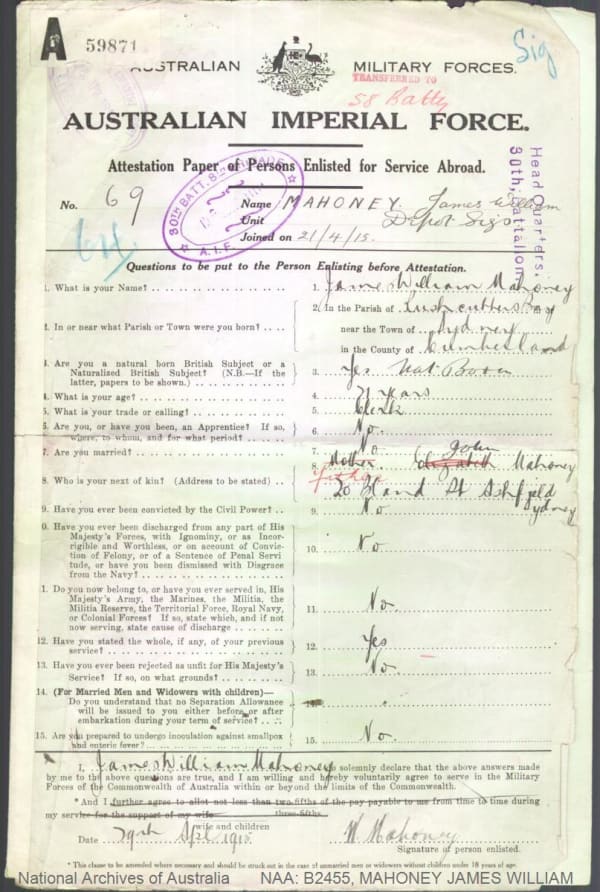 A 59871 Sig
AUSTRALIAN MILITARY FORCES.
TRANSFERRED TO
58 Batty
AUSTRALIAN IMPERIAL FORCE.
Attestation Paper of Persons Enlisted for Service Abroad.
No. 69 Name MAHONEY. James William
Unit Depot Sigs
Joined on 21/4/15.
30TH BATT. 8 BRIGADE
A.I.F.
Head Quarters,
30th Battalion
Questions to be put to the Person Enlisting before Attestation.
1. What is your Name? 1. James William Mahoney
2. In or near what Parish or Town were you born? 2. In the Parish of Rushcutters Bay
near the Town of Sydney
in the County of Cumberland
3. Are you a natural born British Subject or a
Naturalised British Subject? (N.B.—If the
latter, papers to be shown.) 3. Yes Nat. Born
4. What is your age? 4. 21 years
5. What is your trade or calling? 5. Clerk
6. Are you, or have you been, an Apprentice? If so,
where, to whom, and for what period? 6. No.
7. Are you married? 7. No
8. Who is your next of kin? (Address to be stated) 8. Mother Elizabeth John Mahoney
father
St Ashfield
Sydney
9. Have you ever been convicted by the Civil Power? 9. No
0. Have you ever been discharged from any part of His
Majesty's Forces, with Ignominy, or as Incor-
rigible and Worthless, or on account of Convic-
tion of Felony, or of a Sentence of Penal Servi
tude, or have you been dismissed with Disgrace
from the Navy? 10. No
1. Do you now belong to, or have you ever served in, His
Majesty's Army, the Marines, the Militia, the
Militia Reserve, the Territorial Force, Royal Navy,
or Colonial Forces? If so, state which, and if not
now serving, state cause of discharge 11. No
12. Have you stated the whole, if any, of your previous
service? 12. Yes
13. Have you ever been rejected as unfit for His Majesty's
Service? If so, on what grounds? 13. No.
14. (For Married Men and Widowers with children)—
Do you understand that no Separation Allowance
will be issued to you either before or after
embarkation during your term of service? 14.
15. Are you prepared to undergo inoculation against smallpox
and enteric fever? 15. No.
I, James William Mahoney solemnly declare that the above answers made
by me to the above questions are true, and I am willing and hereby voluntarily agree to serve in the Military
Forces of the Commonwealth of Australia within or beyond the limits of the Commonwealth.
*And I further agree to allot not less than two-fifths of the pay payable to me from time to time during
three-fifths
my service for the support of my wife
wife and children
Date 29th Apl 1915 W. Mahoney
Signature of person enlisted.
* This clause to be amended where necessary and should be struck out in the case of unmarried men or widowers without children under 18 years of age.
National Archives of Australia NAA: B2455, MAHONEY JAMES WILLIAM